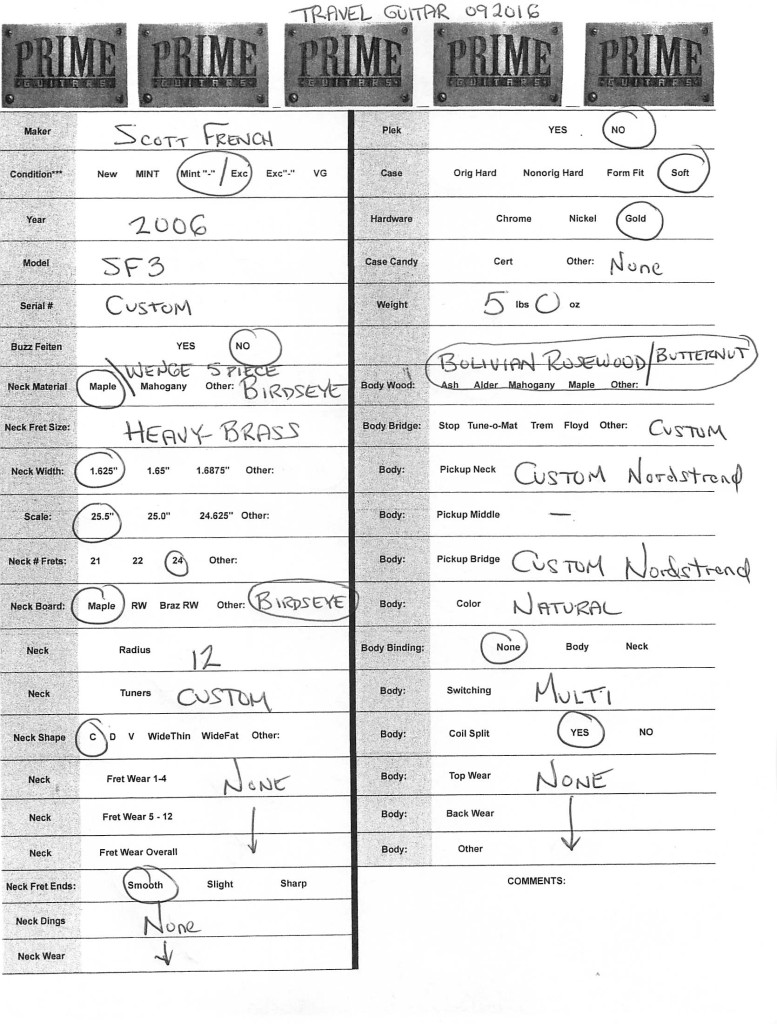 TRAVEL GUITAR 092016
PRIME GUITARS PRIME GUITARS PRIME GUITARS PRIME GUITARS PRIME GUITARS
Maker SCOTT FRENCH
Condition*** New MINT Mint "-" / Exc Exc"-" VG
Year 2006
Model SF3
Serial # CUSTOM
Buzz Feiten YES NO
WENGE 5 PIECE
Neck Material Maple Mahogany Other: BIRDSEYE
Neck Fret Size: HEAVY-BRASS
Neck Width: 1.625" 1.65" 1.6875" Other:
Scale: 25.5" 25.0" 24.625" Other:
Neck # Frets: 21 22 24 Other:
Neck Board: Maple RW Braz RW Other: BIRDSEYE
Neck Radius 12
Neck Tuners CUSTOM
Neck Shape C D V WideThin WideFat Other:
Neck Fret Wear 1-4 NONE
Neck Fret Wear 5 - 12
Neck Fret Wear Overall
Neck Fret Ends: Smooth Slight Sharp
Neck Dings None
Neck Wear
Plek YES NO
Case Orig Hard Nonorig Hard Form Fit Soft
Hardware Chrome Nickel Gold
Case Candy Cert Other: None
Weight 5 lbs 0 oz
BOLIVIAN ROSEWOOD/BUTTERNUT
Body Wood: Ash Alder Mahogany Maple Other:
Body Bridge: Stop Tune-o-Mat Trem Floyd Other: CUSTUM
Body: Pickup Neck CUSTOM Nordstrand
Body: Pickup Middle —
Body: Pickup Bridge CUSTOM Nordstrand
Body: Color NATURAL
Body Binding: None Body Neck
Body: Switching MULTI
Body: Coil Split YES NO
Body: Top Wear NONE
Body: Back Wear
Body: Other
COMMENTS: